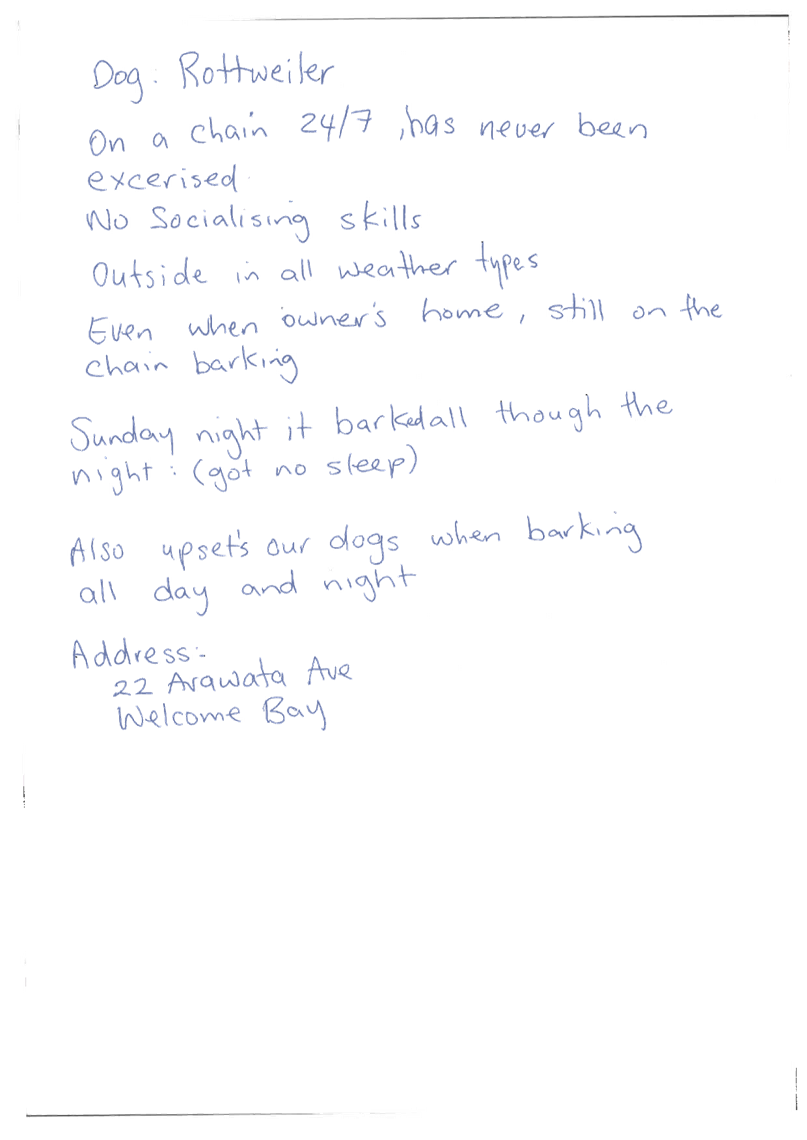 Dog: Rottweiler
On a chain 24/7, has never been
excerised
No Socialising skills
Outside in all weather types
Even when owner's home, still on the
chain barking
Sunday night it barked all though the
night: (got no sleep)
Also upset's our dogs when barking
all day and night
Address:-
22 Arawata Ave
Welcome Bay